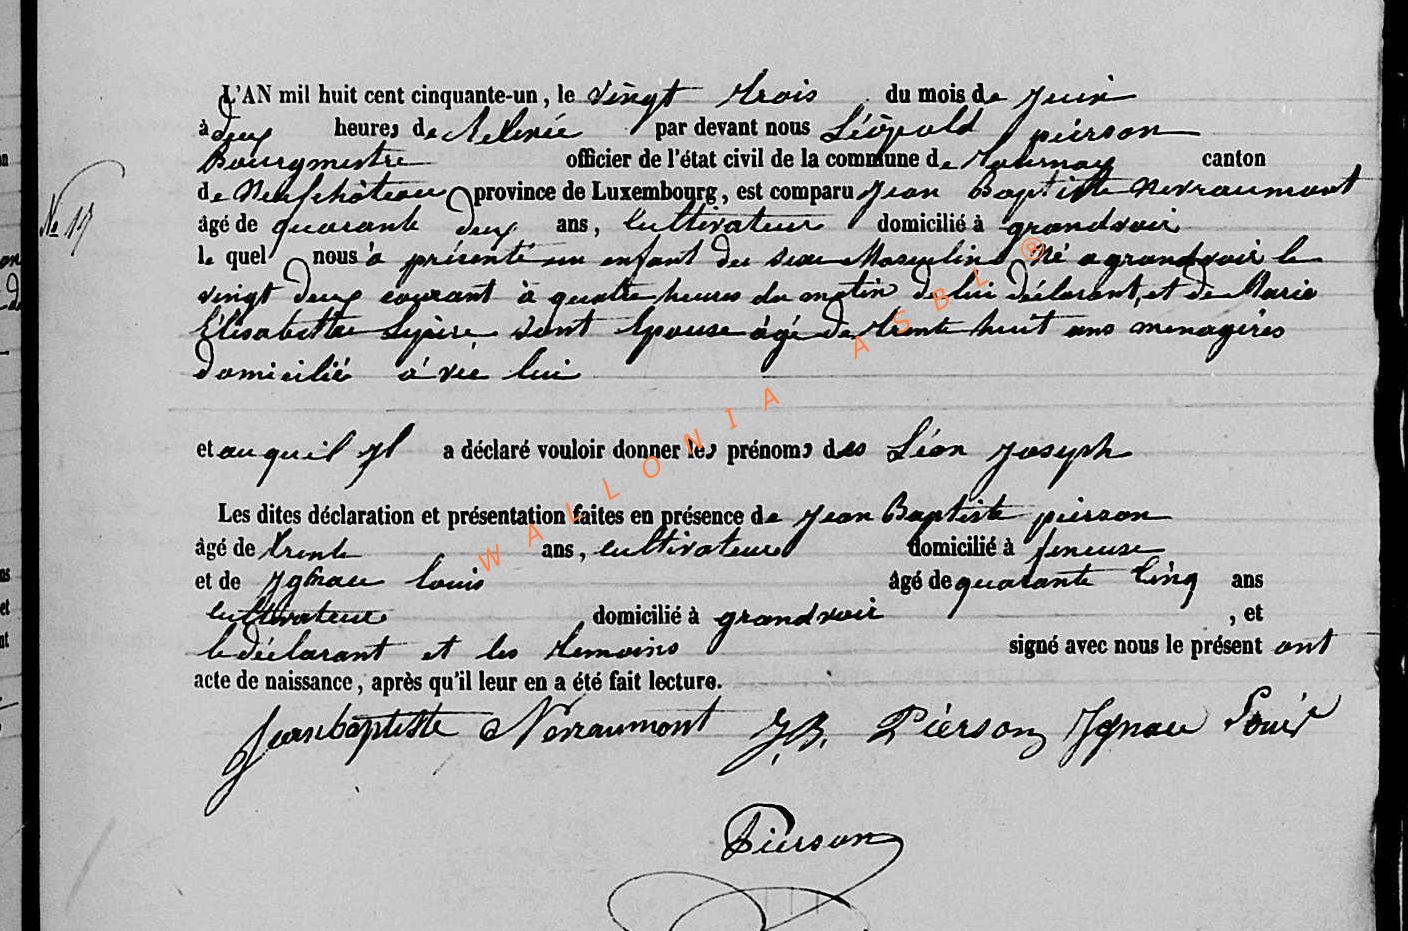 L'AN mil huit cent cinquante-un, le vingt trois du mois de Juin
à deux heures de Relevée par devant nous Léopold pierson
Bourgmestre officier de l'état civil de la commune de Tournay canton
de Neufchâteau province de Luxembourg, est comparu Jean Baptiste Nevraumont
Nº 13
âgé de quarante deux ans, Cultivateur domicilié à grandvoir
le quel nous à présenté un enfant du sexe Masculin Né a grandvoir le
vingt deux courant à quatre heures du matin de lui déclarant, et de Marie
Elisabette Lejeire sont Epouse âgé de trente huit ans menagères
domicilié àvéc lui
et auquel Jl a déclaré vouloir donner les prénoms des Léon Joseph
Les dites déclaration et présentation faites en présence de Jean Baptiste pierson
âgé de trente ans, cultivateur domicilié à feneuse
et de Jgnace louis âgé de quarante Cinq ans
Cultivateur domicilié à grandvoir , et
le déclarant et les temoins signé avec nous le présent ont
acte de naissance, après qu'il leur en a été fait lecture.
Jean baptiste Nevraumont J,B, Piérson Jgnace Louis
Pierson
WALLONIA ASBL ®